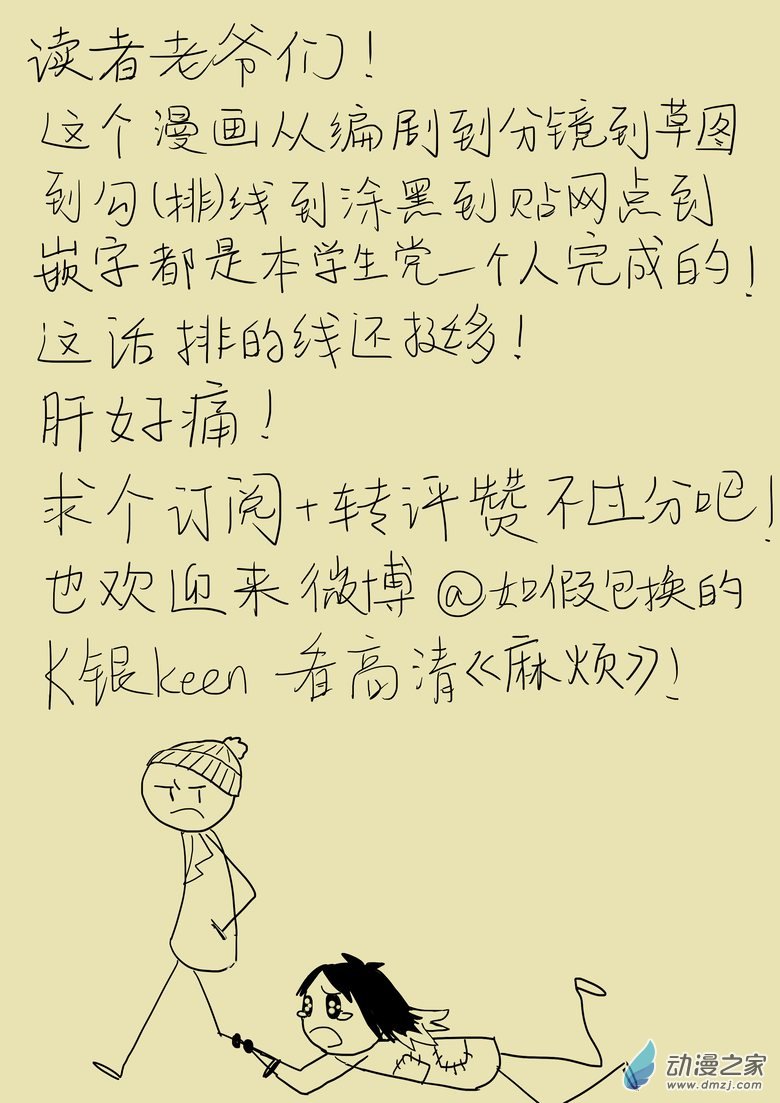 读者老爷们！
这个漫画从编剧到分镜到草图
到勾(排)线到涂黑到贴网点到
嵌字都是本学生党一个人完成的！
这话排的线还挺多！
肝好痛！
求个订阅+转评赞不过分吧！
也欢迎来微博@如假包换的
K银keen 看高清《麻烦》！
动漫之家
www.dmzj.com